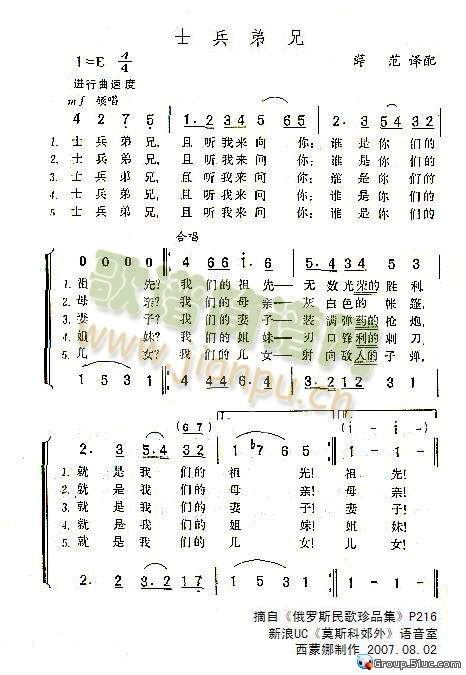 士兵弟兄
1=E 4/4
薛范 译配
进行曲速度
mf 领唱
4 2 7 5 | 1. 2 34 5 65 | 2. 5 34 32
1. 士兵弟兄, 且听我来问你: 谁是你们的
2. 士兵弟兄, 且听我来问你: 谁是你们的
3. 士兵弟兄, 且听我来问你: 谁是你们的
4. 士兵弟兄, 且听我来问你: 谁是你们的
5. 士兵弟兄, 且听我来问你: 谁是你们的
合唱
0 0 0 0
1. 祖先? 我们的祖先——无数光荣的胜利
2. 母亲? 我们的母亲——灰白色的帐篷,
3. 妻子? 我们的妻子——装满弹药的枪炮,
4. 姐妹? 我们的姐妹——刃口锋利的刺刀,
5. 儿女? 我们的儿女——射向敌人的子弹,
1 5 3 1 | 4 44 6. 4 | 3. 21 2 12 | 3 1
(6 7) (i – i –)
2. 3 5.4 32 | 1 7 6 5 | 1 – 1 –
1. 就是我们的祖先! 祖先!
2. 就是我们的母亲! 母亲!
3. 就是我们的妻子! 妻子!
4. 就是我们的姐妹! 姐妹!
5. 就是我们的儿女! 儿女!
歌谱简谱网
www.jianpu.cn
摘自《俄罗斯民歌珍品集》P216
新浪UC《莫斯科郊外》语音室
西蒙娜制作 2007.08.02
Group.51uc.com